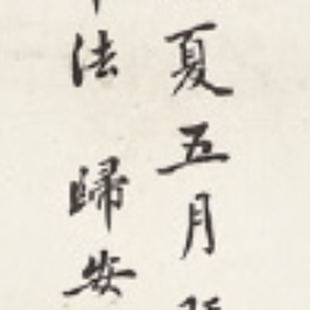 夏五月
法 歸安